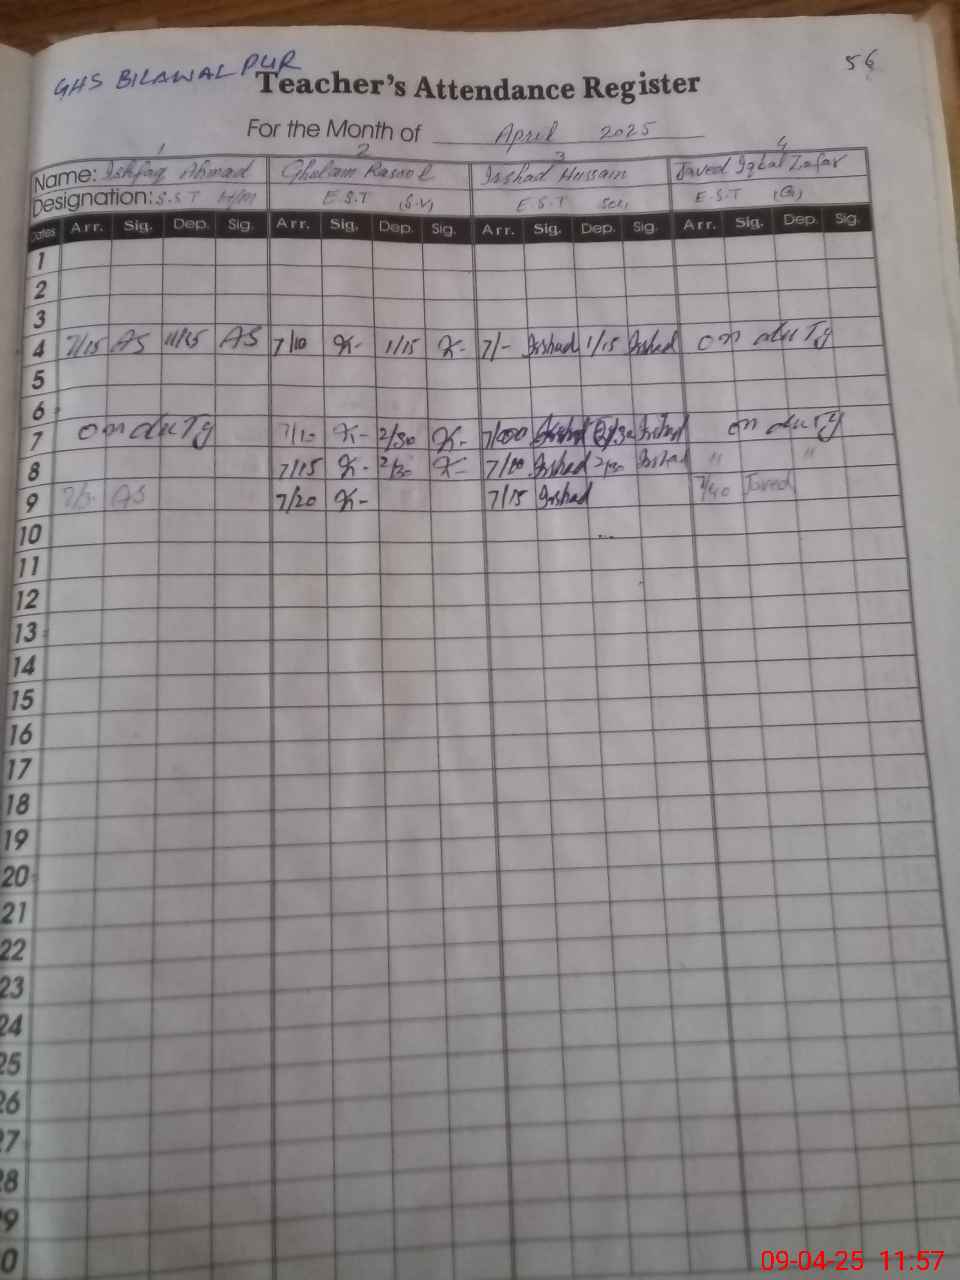 GHS BILAWAL PUR
56
Teacher's Attendance Register
For the Month of April 2025
1 2 3 4
Name: Ishfaq Ahmad Ghulam Rasool Irshad Hussain Javed Iqbal Zafar
Designation: S.S.T H/M E.S.T (S.V) E.S.T Sci, E.S.T (G)
Dates Arr. Sig. Dep. Sig. Arr. Sig. Dep. Sig. Arr. Sig. Dep. Sig. Arr. Sig. Dep. Sig.
1
2
3
4 7/15 AS 11/15 AS 7/10 1/15 7/- Irshad 1/15 Irshad on duTy
5
6
7 on duTy 7/10 2/30 7/00 Irshad 2/30 Irshad on duTy
8 7/15 2/30 7/10 Irshad 2/30 Irshad " "
9 AS 7/20 7/15 Irshad 7/40 Javed
10
11
12
13
14
15
16
17
18
19
20
21
22
23
24
25
26
27
28
29
30
09-04-25 11:57